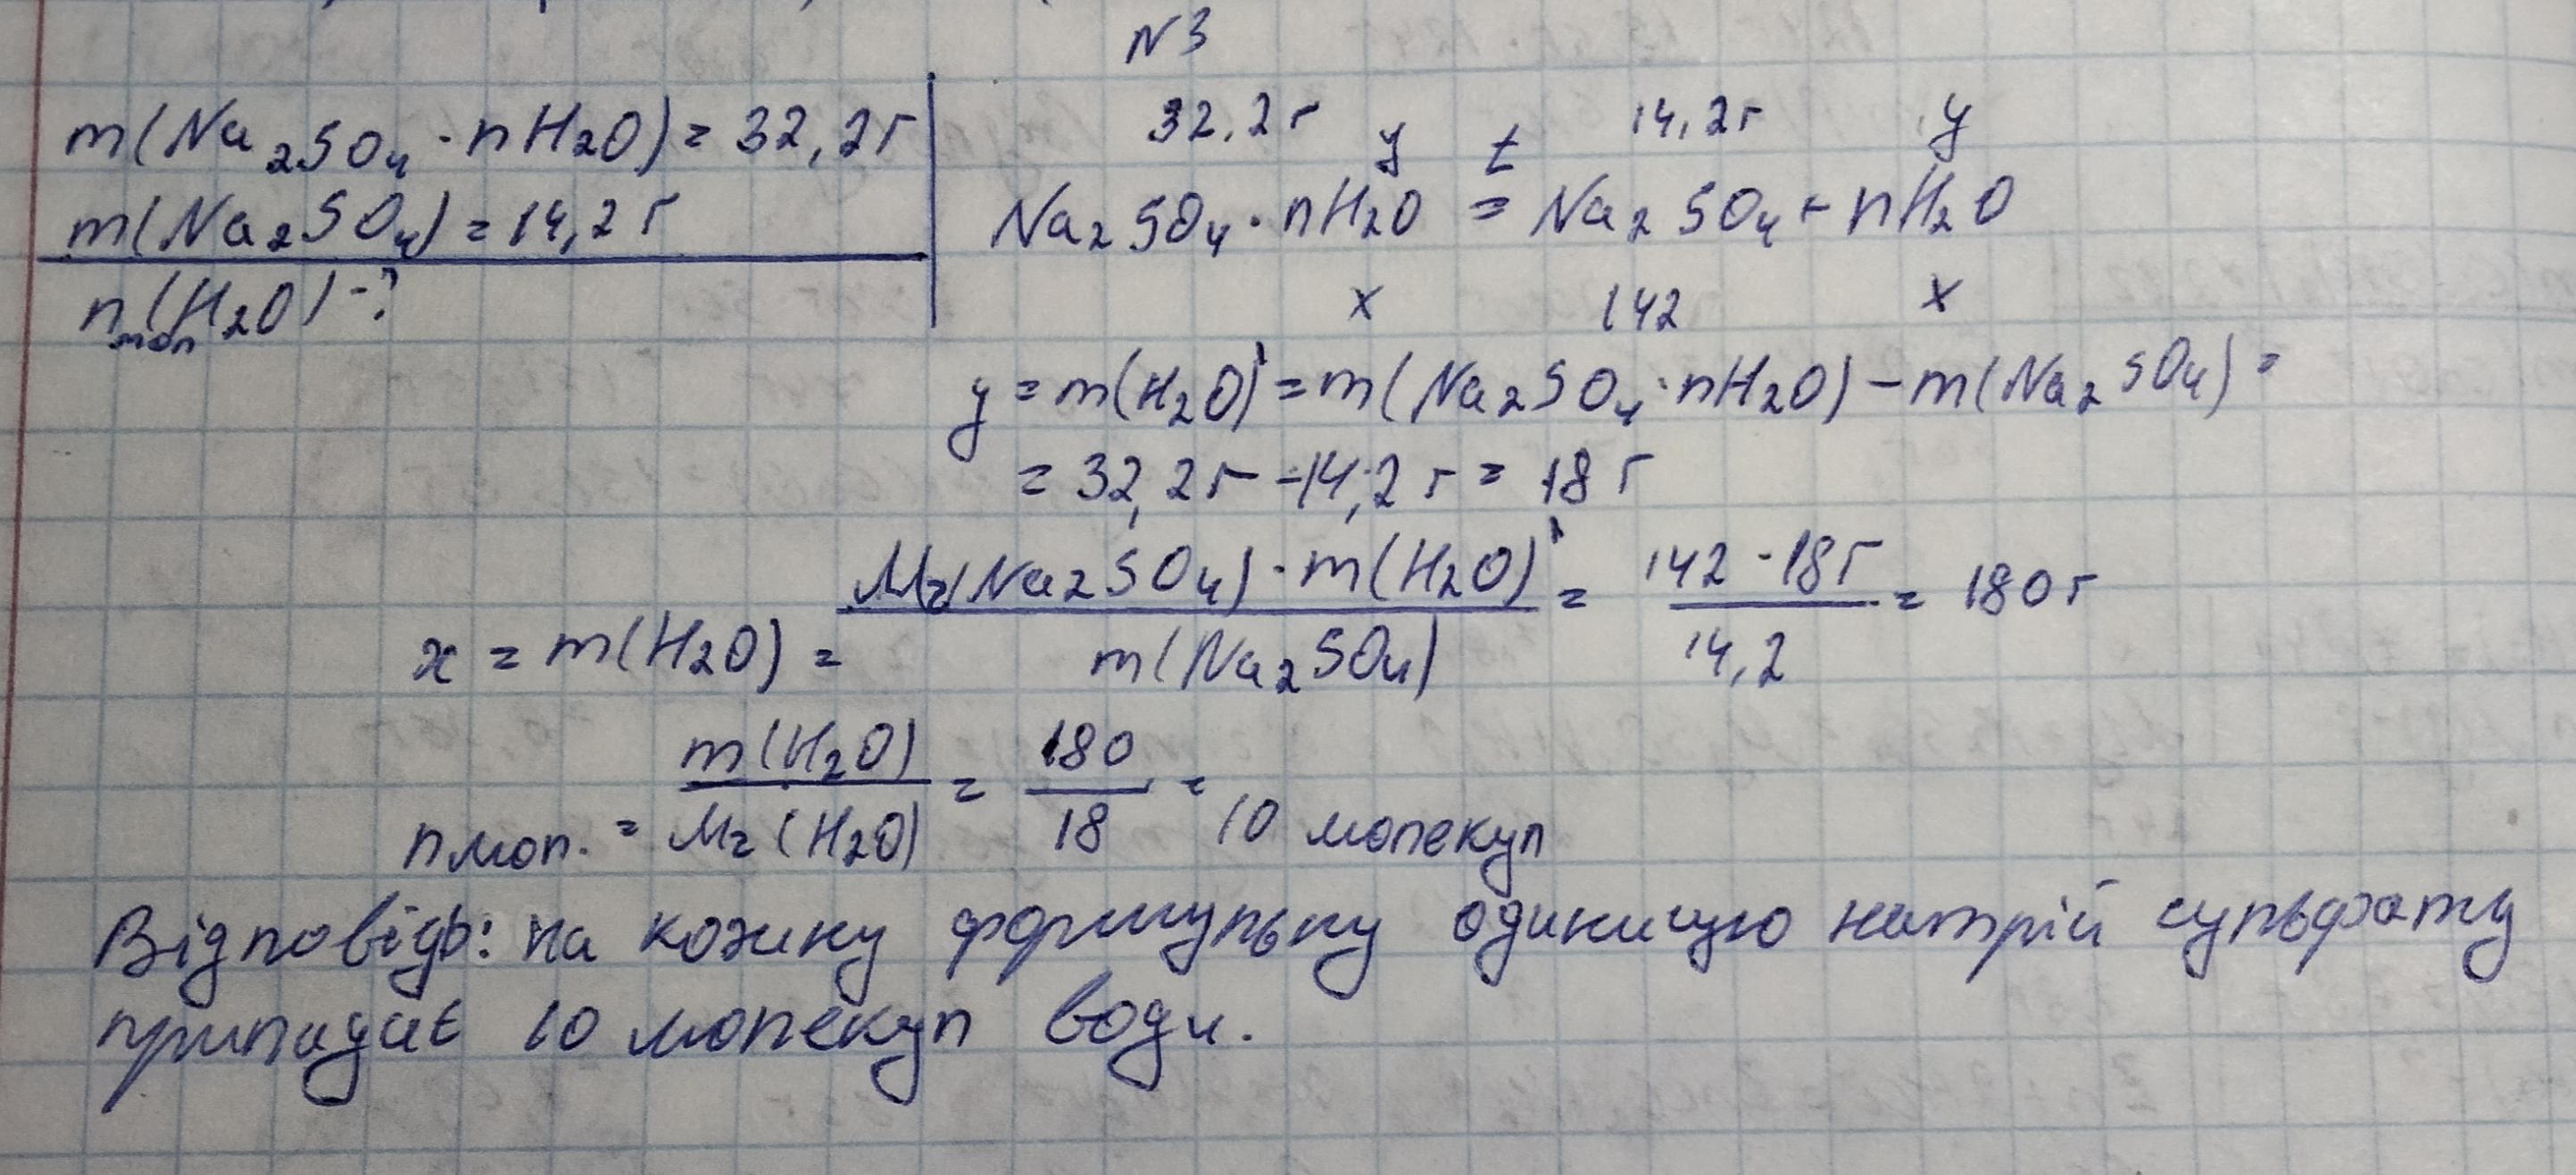 N3
m(Na₂SO₄ · nH₂O) = 32,2г
m(Na₂SO₄) = 14,2 г
nмол(H₂O) -?
32,2г y t 14,2г y
Na₂SO₄ · nH₂O = Na₂SO₄ + nH₂O
x 142 x
y = m(H₂O)' = m(Na₂SO₄ · nH₂O) - m(Na₂SO₄) =
= 32,2г - 14,2 г = 18 г
x = m(H₂O) = Mr(Na₂SO₄) · m(H₂O)' / m(Na₂SO₄) = 142 · 18г / 14,2 = 180г
nмол. = m(H₂O) / Mr(H₂O) = 180 / 18 = 10 молекул
Відповідь: на кожну формульну одиницю натрій сульфату
припадає 10 молекул води.